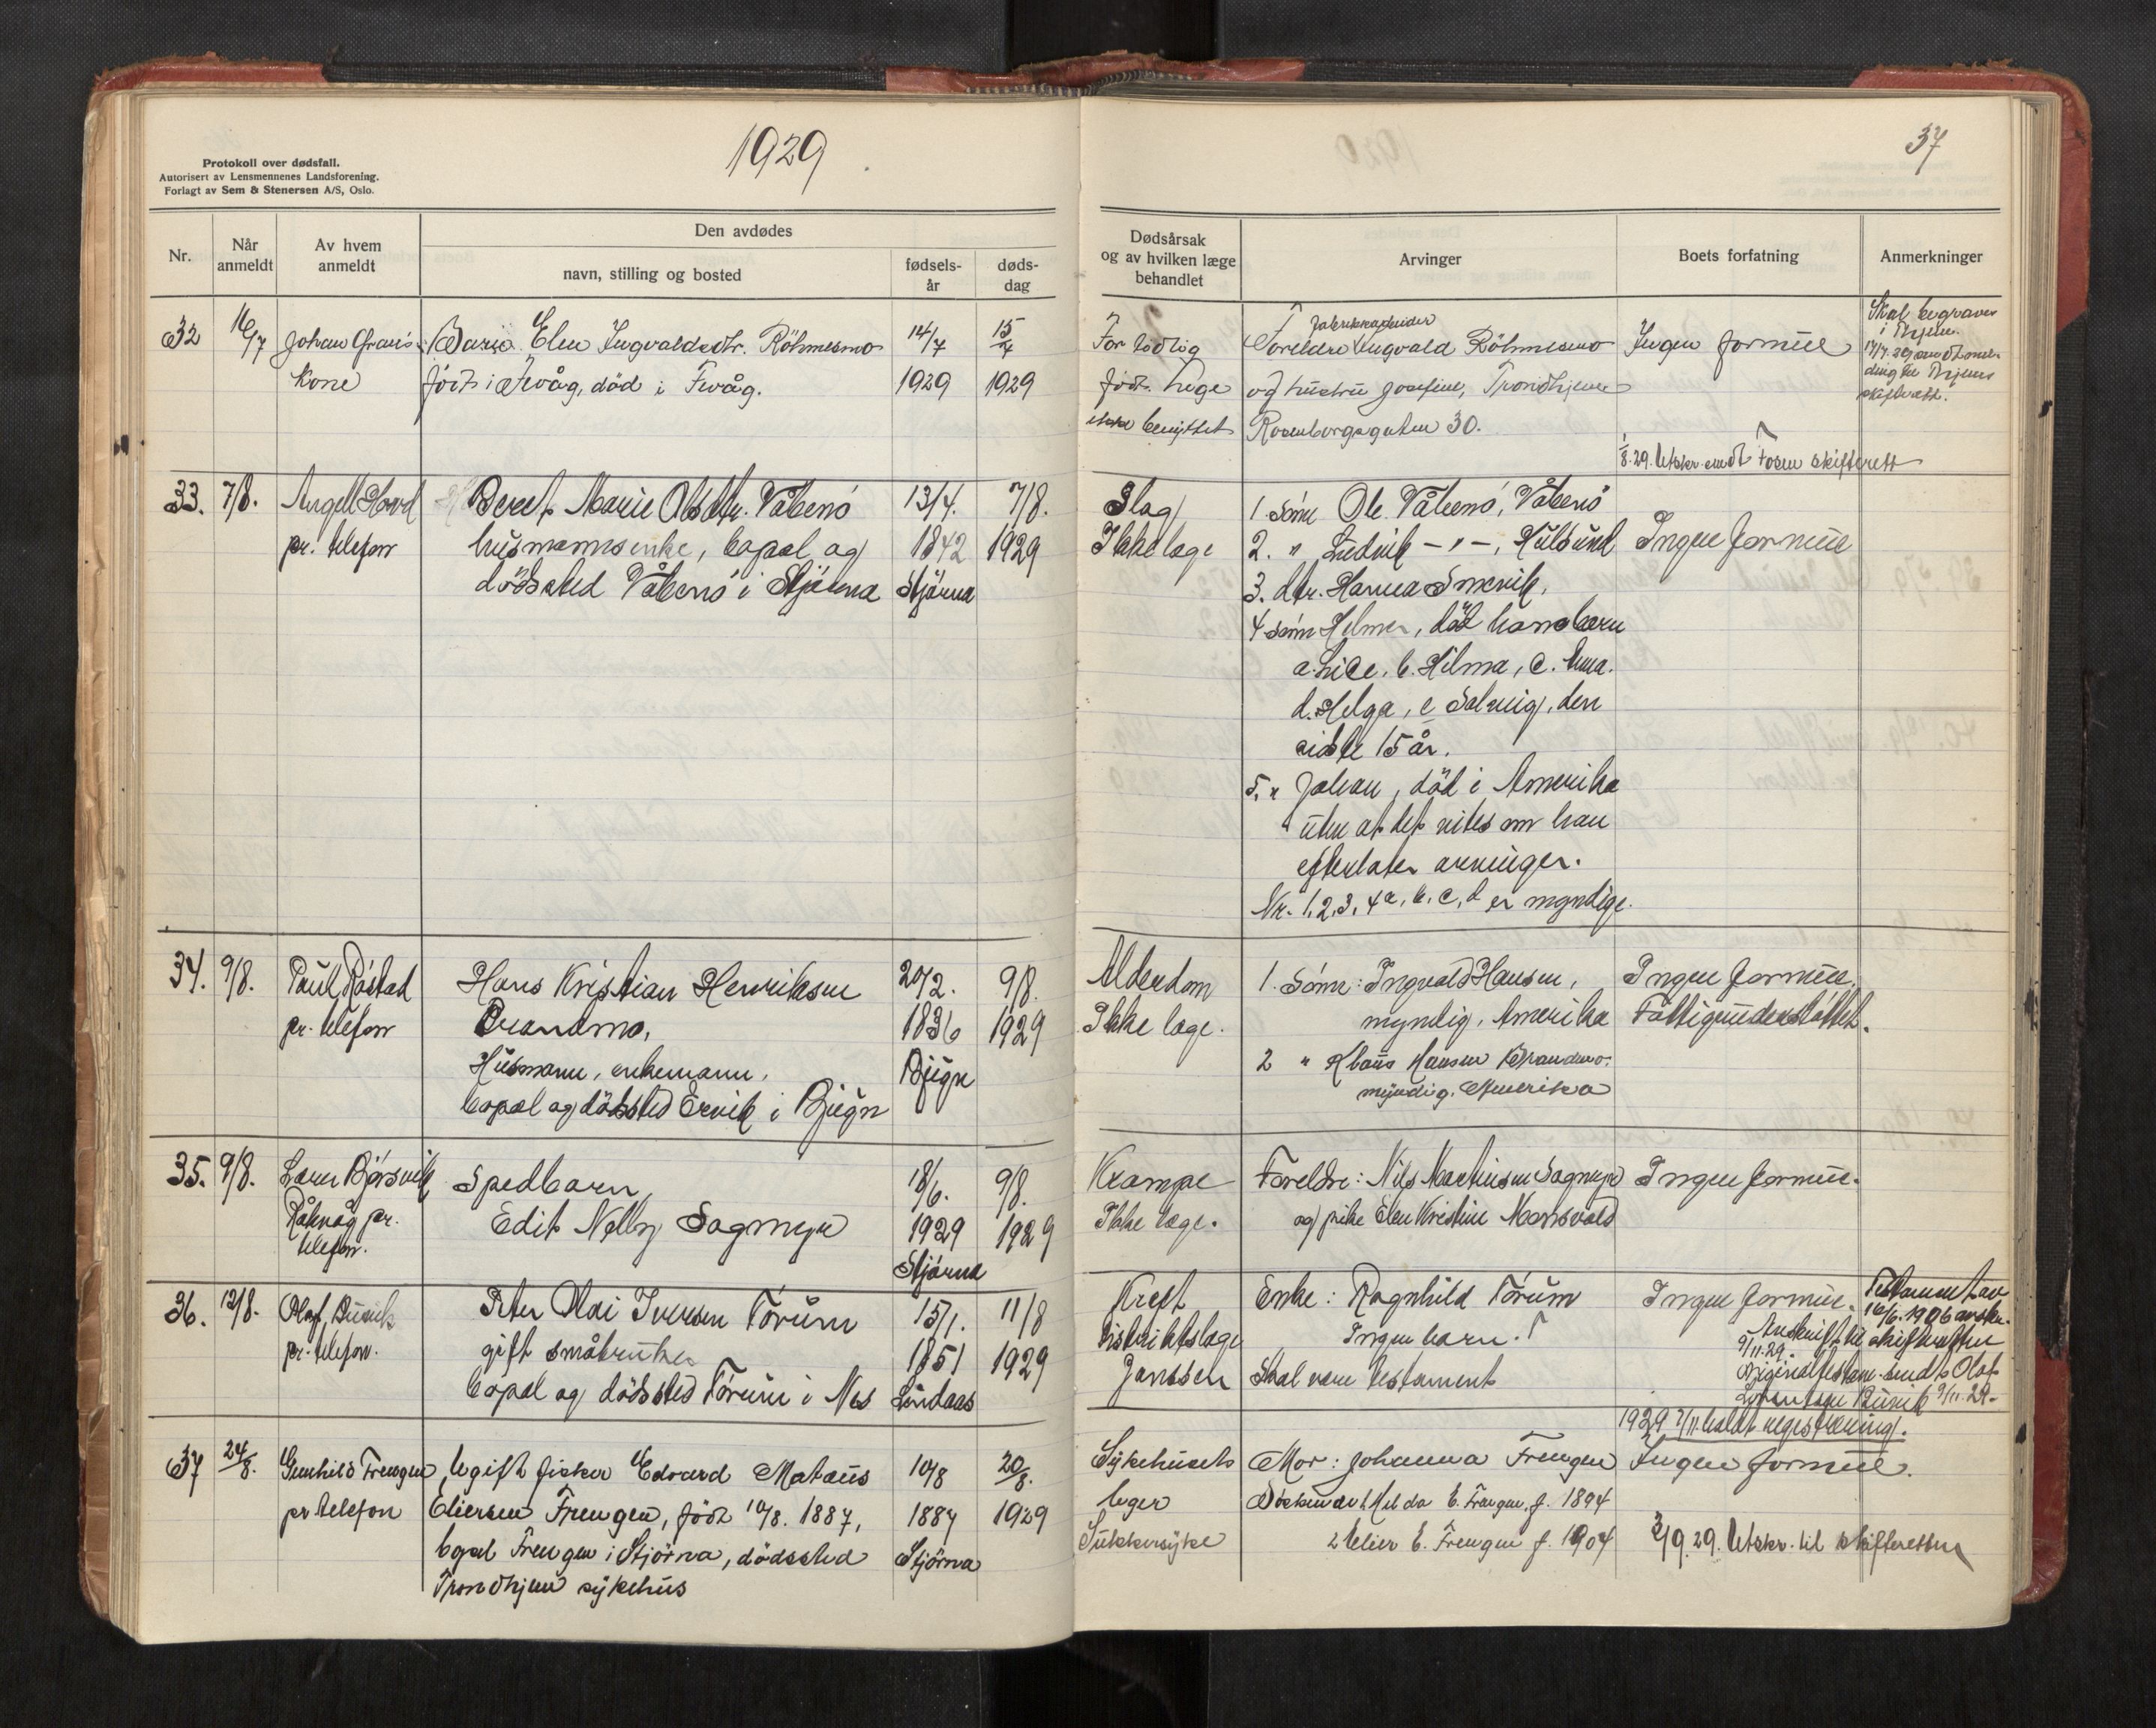 1929
37
Protokoll over dødsfall.
Autorisert av Lensmennenes Landsforening.
Forlagt av Sem & Stenersen A/S, Oslo.
Nr.
Når anmeldt
Av hvem anmeldt
Den avdødes
navn, stilling og bosted
fødsels-år
døds-dag
Dødsårsak og av hvilken læge behandlet
Arvinger
Boets forfatning
Anmerkninger
32
16/7
Johan
Kone
Elen Ingvaldsdtr. Röhmesmo
født i Fevåg, död i Fevåg.
14/7
1929
15/7
1929
For tidlig
født. Lege
ikke benyttet
Fabrikkarbeider
Foreldre Ingvald Röhmesmo
og hustru Josefine, Trondhjem
Rosenborgsgaten 30.
Ingen formue
Skal begraves
i Thjem.
skifterett.
1/8.29. Utskr. sendt Fosen skifterett
33.
7/8.
Angell Hovd
pr. telefon
Beret Marie Olsdtr. Våtenø
husmannsenke, bopæl og
dødssted Våtenø i Stjørna
13/4.
1842
Stjørna
7/8.
1929
Slag
Ikke læge
1. Sønn Ole Våtenø, Våtenø
2. " Ludvik - " -, Hulsund
3. dtr. Hanna Smevik,
4 sønn Helmer, död hans barn
b. Hilma, c.
d. Helga, e Solveig, den
sidste 15 år.
5. " Johan, död i Amerika
uten at det vites om han
efterlater arvinger.
Nr. 1, 2, 3, 4a, b, c, d er myndige.
Ingen formue
34.
9/8.
Paul Røstad
pr. telefon
Hans Kristian Henriksen
Brandmo,
Husmann, enkemann,
bopæl og dødssted Ervik i Bjugn
20/2.
1836
Bjugn
9/8.
1929
Alderdom
Ikke læge.
1. Sønn: Ingvald Hansen,
myndig, Amerika
2 " Klaus Hansen Brandmo.
myndig. Amerika
Ingen formue.
Fattigunderstøttet.
35.
9/8.
Lærer Bjørsvik
Råkvåg pr.
telefon.
Spedbarn
Edit Nelly Sagmyr
18/6.
1929
Stjørna
9/8.
1929
Krampe
Ikke læge.
Foreldre: Nils Martinsen Sagmyr
og pike Elen Kristine
Ingen formue.
36.
12/8.
Olaf Burvik
pr. telefon.
Peter Olai Iversen Tørum
gift småbruker
bopæl og dødssted Tørum i Nes
15/1.
1851
Lindaas
11/8
1929
Kreft
Distriktslæge
Janssen
Enke: Ragnhild Tørum
Ingen barn.
Skal være testament
Ingen formue.
Testament av
16/6. 1906
Avskrift til skifteretten
9/11.29.
Originaltestam. sendt Olaf
Burvik 9/11.29-
1929 7/11. holdt registrering.
37
24/8.
Gunhild Frengen
pr telefon
Ugift fisker Edvard Mataus
Eliersen Frengen, född 10/8. 1887,
bopel Frengen i Stjörna, dödssted
Trondhjem sykehus
10/8
1887
Stjörna
20/8.
1929
Sykehusets
leger
Sukkersyke
Mor: Johanna Frengen
Søsken av Helda E. Frengen, f. 1894
2 Melier E. Frengen f. 1904
Ingen formue.
2/9.29. Utskr. til skifteretten